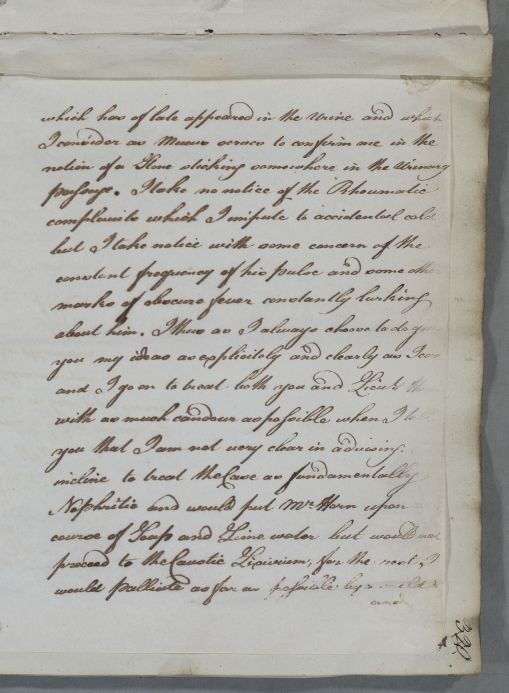 which has of late appeared in the Urine and what
I consider as Mucus serves to confirm me in the
notion of a Stone sticking somewhere in the Urinary
passage. I take no notice of the Rheumatic
complaints which I impute to accidental cold
but I take notice with some concern of the
constant frequency of his pulse and some other
marks of obscure fever constantly lurking
about him. Thus as I always choose to do
you my ideas as explicitely and clearly as I can
and I go on to treat both you and Lieut.
with as much candour as possible when I
you that I am not very clear in advising.
incline to treat the Case as fundamentally
Nephritic and would put Mr Horn upon
course of Soap and Lime water but would not
proceed to the Caustic Lixivium, for the rest I
would palliate as far as possible by
and
320